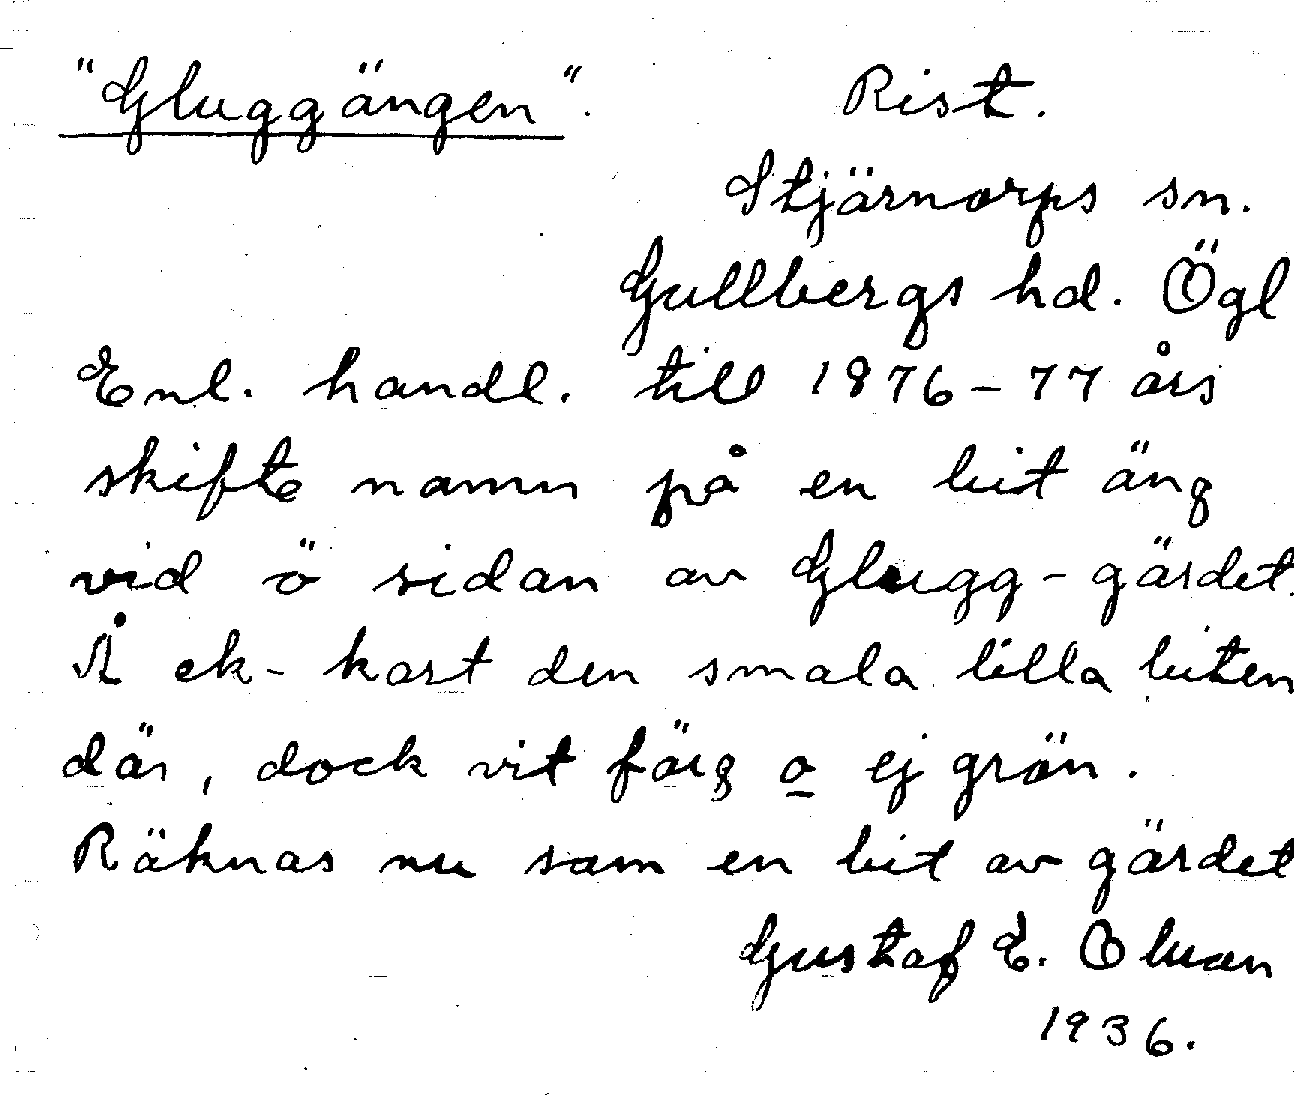 "Gluggängen". Rist.
Stjärnorps sn.
Gullbergs hd. Ögl
Enl. handl. till 1876-77 års
skifte namn på en bit äng
vid ö sidan av Glugg-gärdet.
Å ek-kart den smala lilla biten
där, dock vit färg o ej grön.
Räknas nu som en bit av gärdet
Gustaf E.
1936.